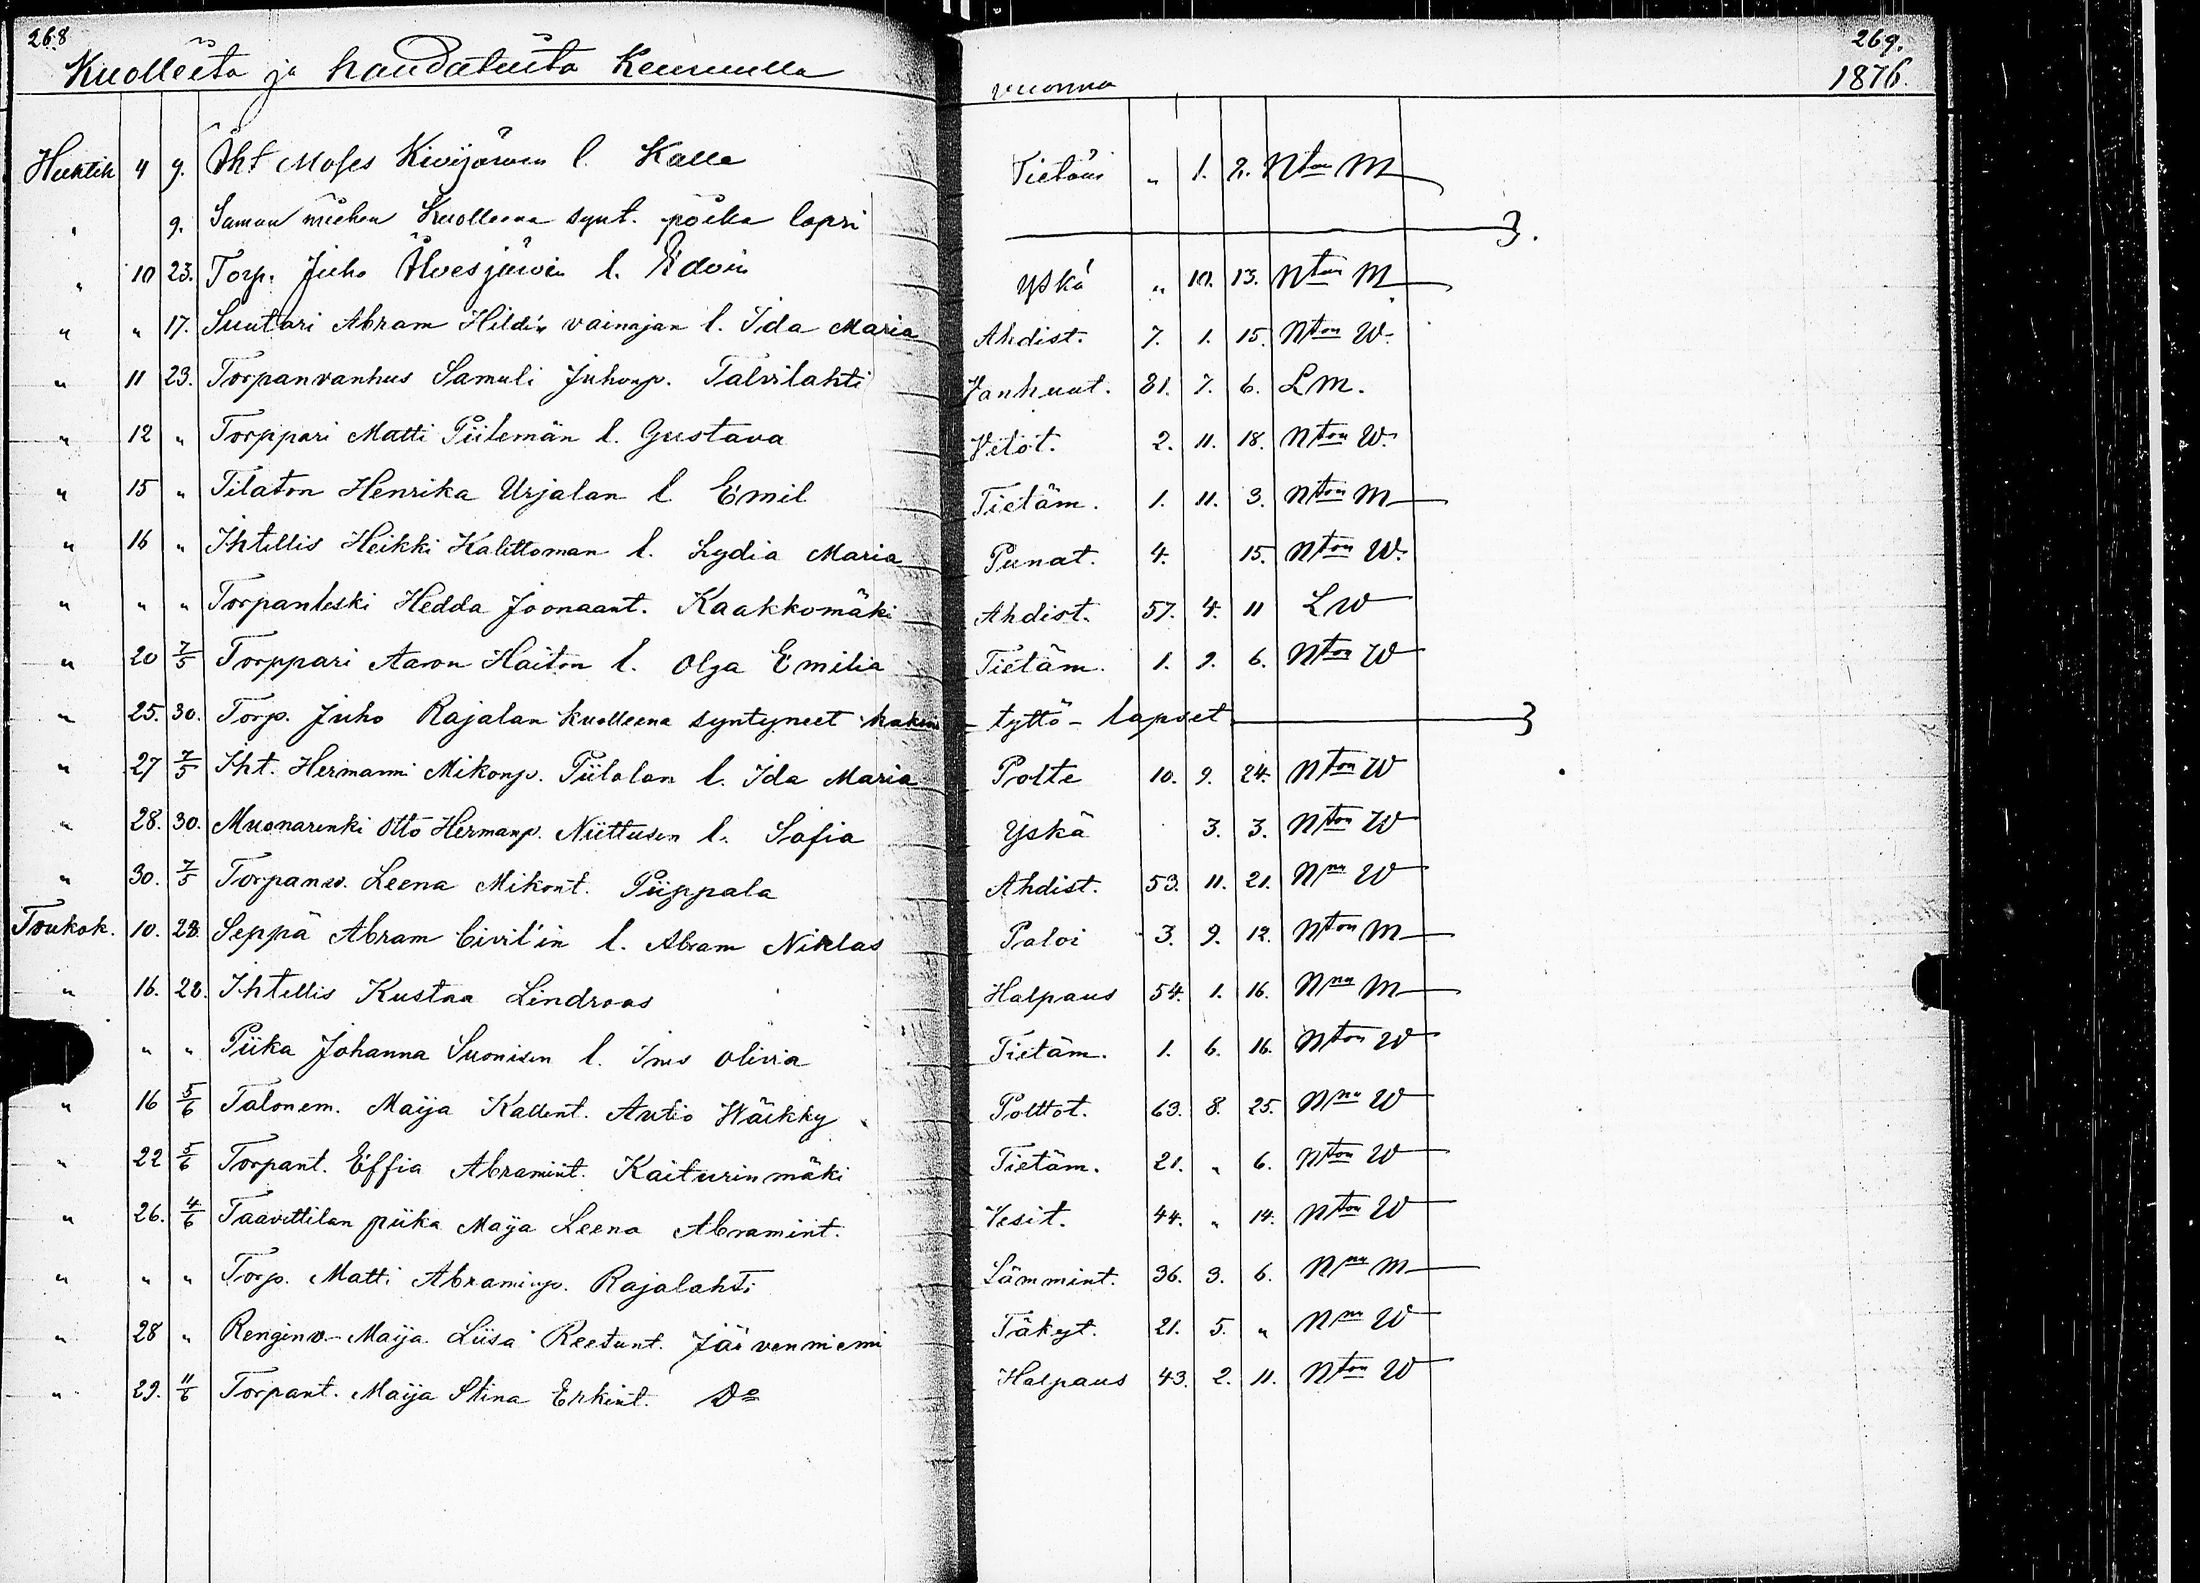 268
Kuolleita ja haudatuita Keuruulla
vuonna
269.
1876.
Huhtik 4 9. Iht Moses Kivijärven l. Kalla Tietäm „ 1. 2. Nton M
„ 9. Saman miehen kuolleena synt. poika lapsi
„ 10 23. Torp. Juho Ahvesjärvin l. Edvin Yskä „ 10. 13. Nton M
„ „ 17. Suutari Abram Hildén vainajan l. Ida Maria Ahdist. 7. 1. 15. Nton W.
„ 11 23. Torpanvanhus Samuli Juhonp. Talvilahti Vanhuut. 81. 7. 6. L M.
„ 12 „ Torppari Matti Piilemän l. Gustava Vetot. 2. 11. 18. Nton W.
„ 15 „ Tilaton Henrika Urjalan l Emil Tietäm. 1. 11. 3. Nton M
„ 16 „ Ihtellis Heikki Kalettoman l. Lydia Maria Punat. 4. 15. Nton W.
„ „ „ Torpanleski Hedda Joonaant. Kaakkomäki Ahdist. 57. 4. 11 L W
„ 20 7/5 Torppari Aaron Haiton l. Olga Emilia Tietäm. 1. 9. 6. Nton W
„ 25. 30. Torp. Juho Rajalan kuolleena syntyneet kaksi tyttö-lapset
„ 27 7/5 Iht. Hermanni Mikonp. Piilolan l. Ida Maria Polte 10. 9. 24. Nton W
„ 28. 30. Muonarenki Otto Hermanp. Niittusen l. Sofia Yskä 3. 3. Nton W
„ 30. 7/5 Torpanv. Leena Mikont. Piippala Ahdist. 53. 11. 21. Nnu W
Toukok. 10. 28. Seppä Abram Civil'in l. Abram Niklas Paloi 3. 9. 12. Nton M
„ 16. 28. Ihtellis Kustaa Lindroos Halpaus 54. 1. 16. Nnu M
„ „ Piika Johanna Suonisen l. Ines Olivia Tietäm. 1. 6. 16. Nton W
„ 16 5/6 Talonem. Maija Kallent. Autio Häkky Polttot. 63. 8. 25. Nnu W
„ 22 5/6 Torpant. Effia Abramint. Kaiturinmäki Tietäm. 21. „ 6. Nton W
„ 26. 4/6 Taavettilan piika Maija Leena Abramint. Vesit. 44. „ 14. Nton W
„ „ „ Torp. Matti Abraminp. Rajalahti Lämmint. 36. 3. 6. Nnu M
„ 28 „ Renginv. Maija Liisa Reetunt. Järvenniemi Täkyt. 21. 5. „ Nnu W
„ 29. 11/6 Torpant. Maija Stina Erkint. Do Halpaus 43. 2. 11. Nton W